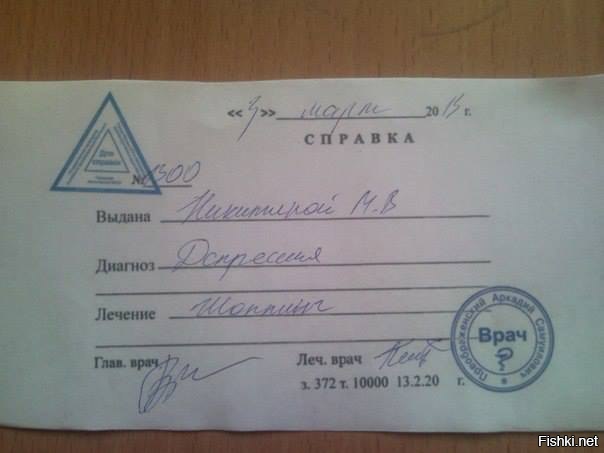 «3» март 2013 г.
СПРАВКА
Для справок
№ 1300
Выдана Никитиной М.В
Диагноз Депрессия
Лечение Шоппинг
Глав. врач Леч. врач
з. 372 т. 10000 13.2.20 г.
Преображенский Аркадий Самуилович
Врач
Fishki.net